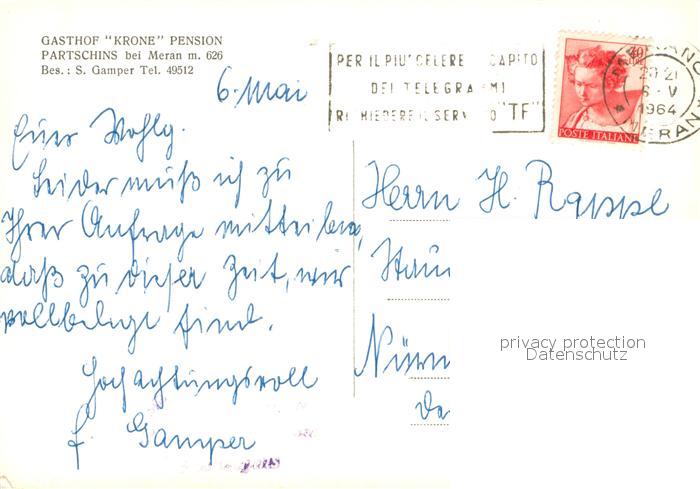 GASTHOF "KRONE" PENSION
PARTSCHINS bei Meran m. 626
Bes.: S. Gamper Tel. 49512
6. Mai
Euer Wohlg.
Leider muß ich zu
Ihrer Anfrage mitteilen,
daß zu dieser Zeit, wir
vollbelegt sind.
Hochachtungsvoll
f. Gamper
PER IL PIU' CELERE CAPITO
DEI TELEGRAMMI
RICHIEDERE IL SERVIZIO "TF"
POSTE ITALIANE
MERANO
20-21
6-V
1964
MERANO
Herrn H. Rappel
Nürn
privacy protection
Datenschutz